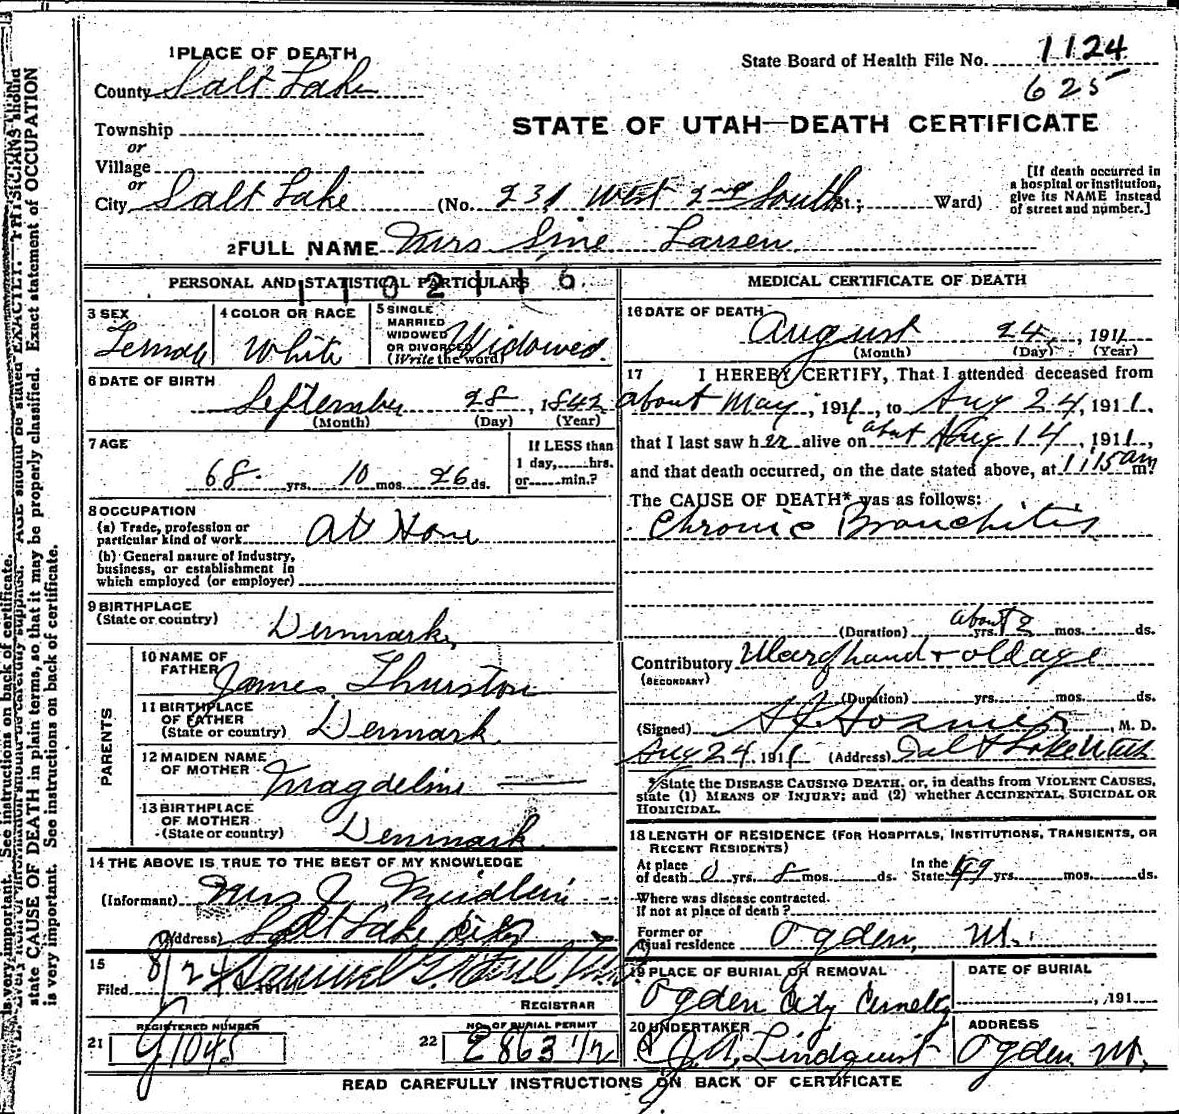 1 PLACE OF DEATH
County Salt Lake
Township
or
Village
or
City Salt Lake (No. 231 West 2nd South St.; Ward)
State Board of Health File No. 1124
625
STATE OF UTAH—DEATH CERTIFICATE
[If death occurred in
a hospital or institution,
give its NAME instead
of street and number.]
2 FULL NAME Mrs Sine Larsen
PERSONAL AND STATISTICAL PARTICULARS
1102116
3 SEX
Female
4 COLOR OR RACE
White
5 SINGLE
MARRIED
WIDOWED
OR DIVORCED
(Write the word)
Widowed.
6 DATE OF BIRTH
September 28, 1842
(Month) (Day) (Year)
7 AGE
68 yrs. 10 mos. 26 ds.
If LESS than
1 day, hrs.
or min.?
8 OCCUPATION
(a) Trade, profession or
particular kind of work At Home
(b) General nature of industry,
business, or establishment in
which employed (or employer)
9 BIRTHPLACE
(State or country)
Denmark
PARENTS
10 NAME OF
FATHER
James Thurston
11 BIRTHPLACE
OF FATHER
(State or country) Denmark
12 MAIDEN NAME
OF MOTHER
Magdeline
13 BIRTHPLACE
OF MOTHER
(State or country) Denmark
14 THE ABOVE IS TRUE TO THE BEST OF MY KNOWLEDGE
(Informant) Mrs J
(Address) Salt Lake City
15
Filed 8/24 191
REGISTRAR
21 REGISTERED NUMBER
1045
22 NO. OF BURIAL PERMIT
MEDICAL CERTIFICATE OF DEATH
16 DATE OF DEATH
August 24, 1911
(Month) (Day) (Year)
17 I HEREBY CERTIFY, That I attended deceased from
about May, 1911, to Aug 24, 1911,
that I last saw her alive on about Aug 14, 1911,
and that death occurred, on the date stated above, at 1:15 am
The CAUSE OF DEATH* was as follows:
Chronic Bronchitis
(Duration) about 2 yrs. mos. ds.
Contributory + old age
(SECONDARY)
(Duration) yrs. mos. ds.
(Signed) M. D.
Aug 24 1911 (Address) Salt Lake Utah
*State the DISEASE CAUSING DEATH, or, in deaths from VIOLENT CAUSES,
state (1) MEANS OF INJURY; and (2) whether ACCIDENTAL, SUICIDAL OR
HOMICIDAL.
18 LENGTH OF RESIDENCE (FOR HOSPITALS, INSTITUTIONS, TRANSIENTS, OR
RECENT RESIDENTS)
At place
of death 0 yrs. 8 mos. ds. In the
State 49 yrs. mos. ds.
Where was disease contracted.
If not at place of death?
Former or
usual residence Ogden, Ut.
19 PLACE OF BURIAL OR REMOVAL
Ogden City Cemetery
DATE OF BURIAL
, 191
20 UNDERTAKER
Lindquist
ADDRESS
Ogden Ut.
READ CAREFULLY INSTRUCTIONS ON BACK OF CERTIFICATE
state CAUSE OF DEATH in plain terms, so that it may be properly classified. Exact statement of OCCUPATION
is very important. See instructions on back of certificate.